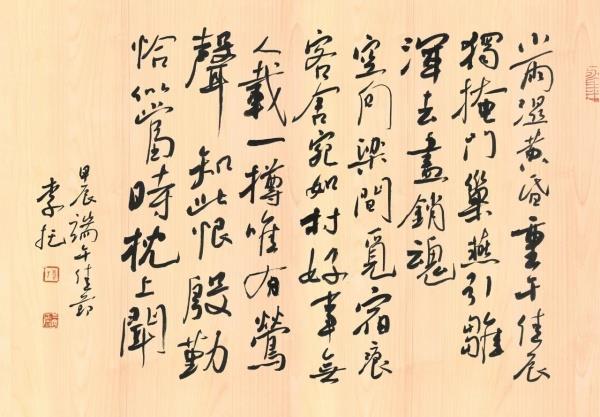 小雨濕黃昏重午佳辰
獨掩門巢燕引雛
渾去盡銷魂
空向梁間覓宿痕
客舍宛如村好事無
人載一樽唯有鶯
聲知此恨殷勤
恰似當時枕上聞
甲辰端午佳節
李